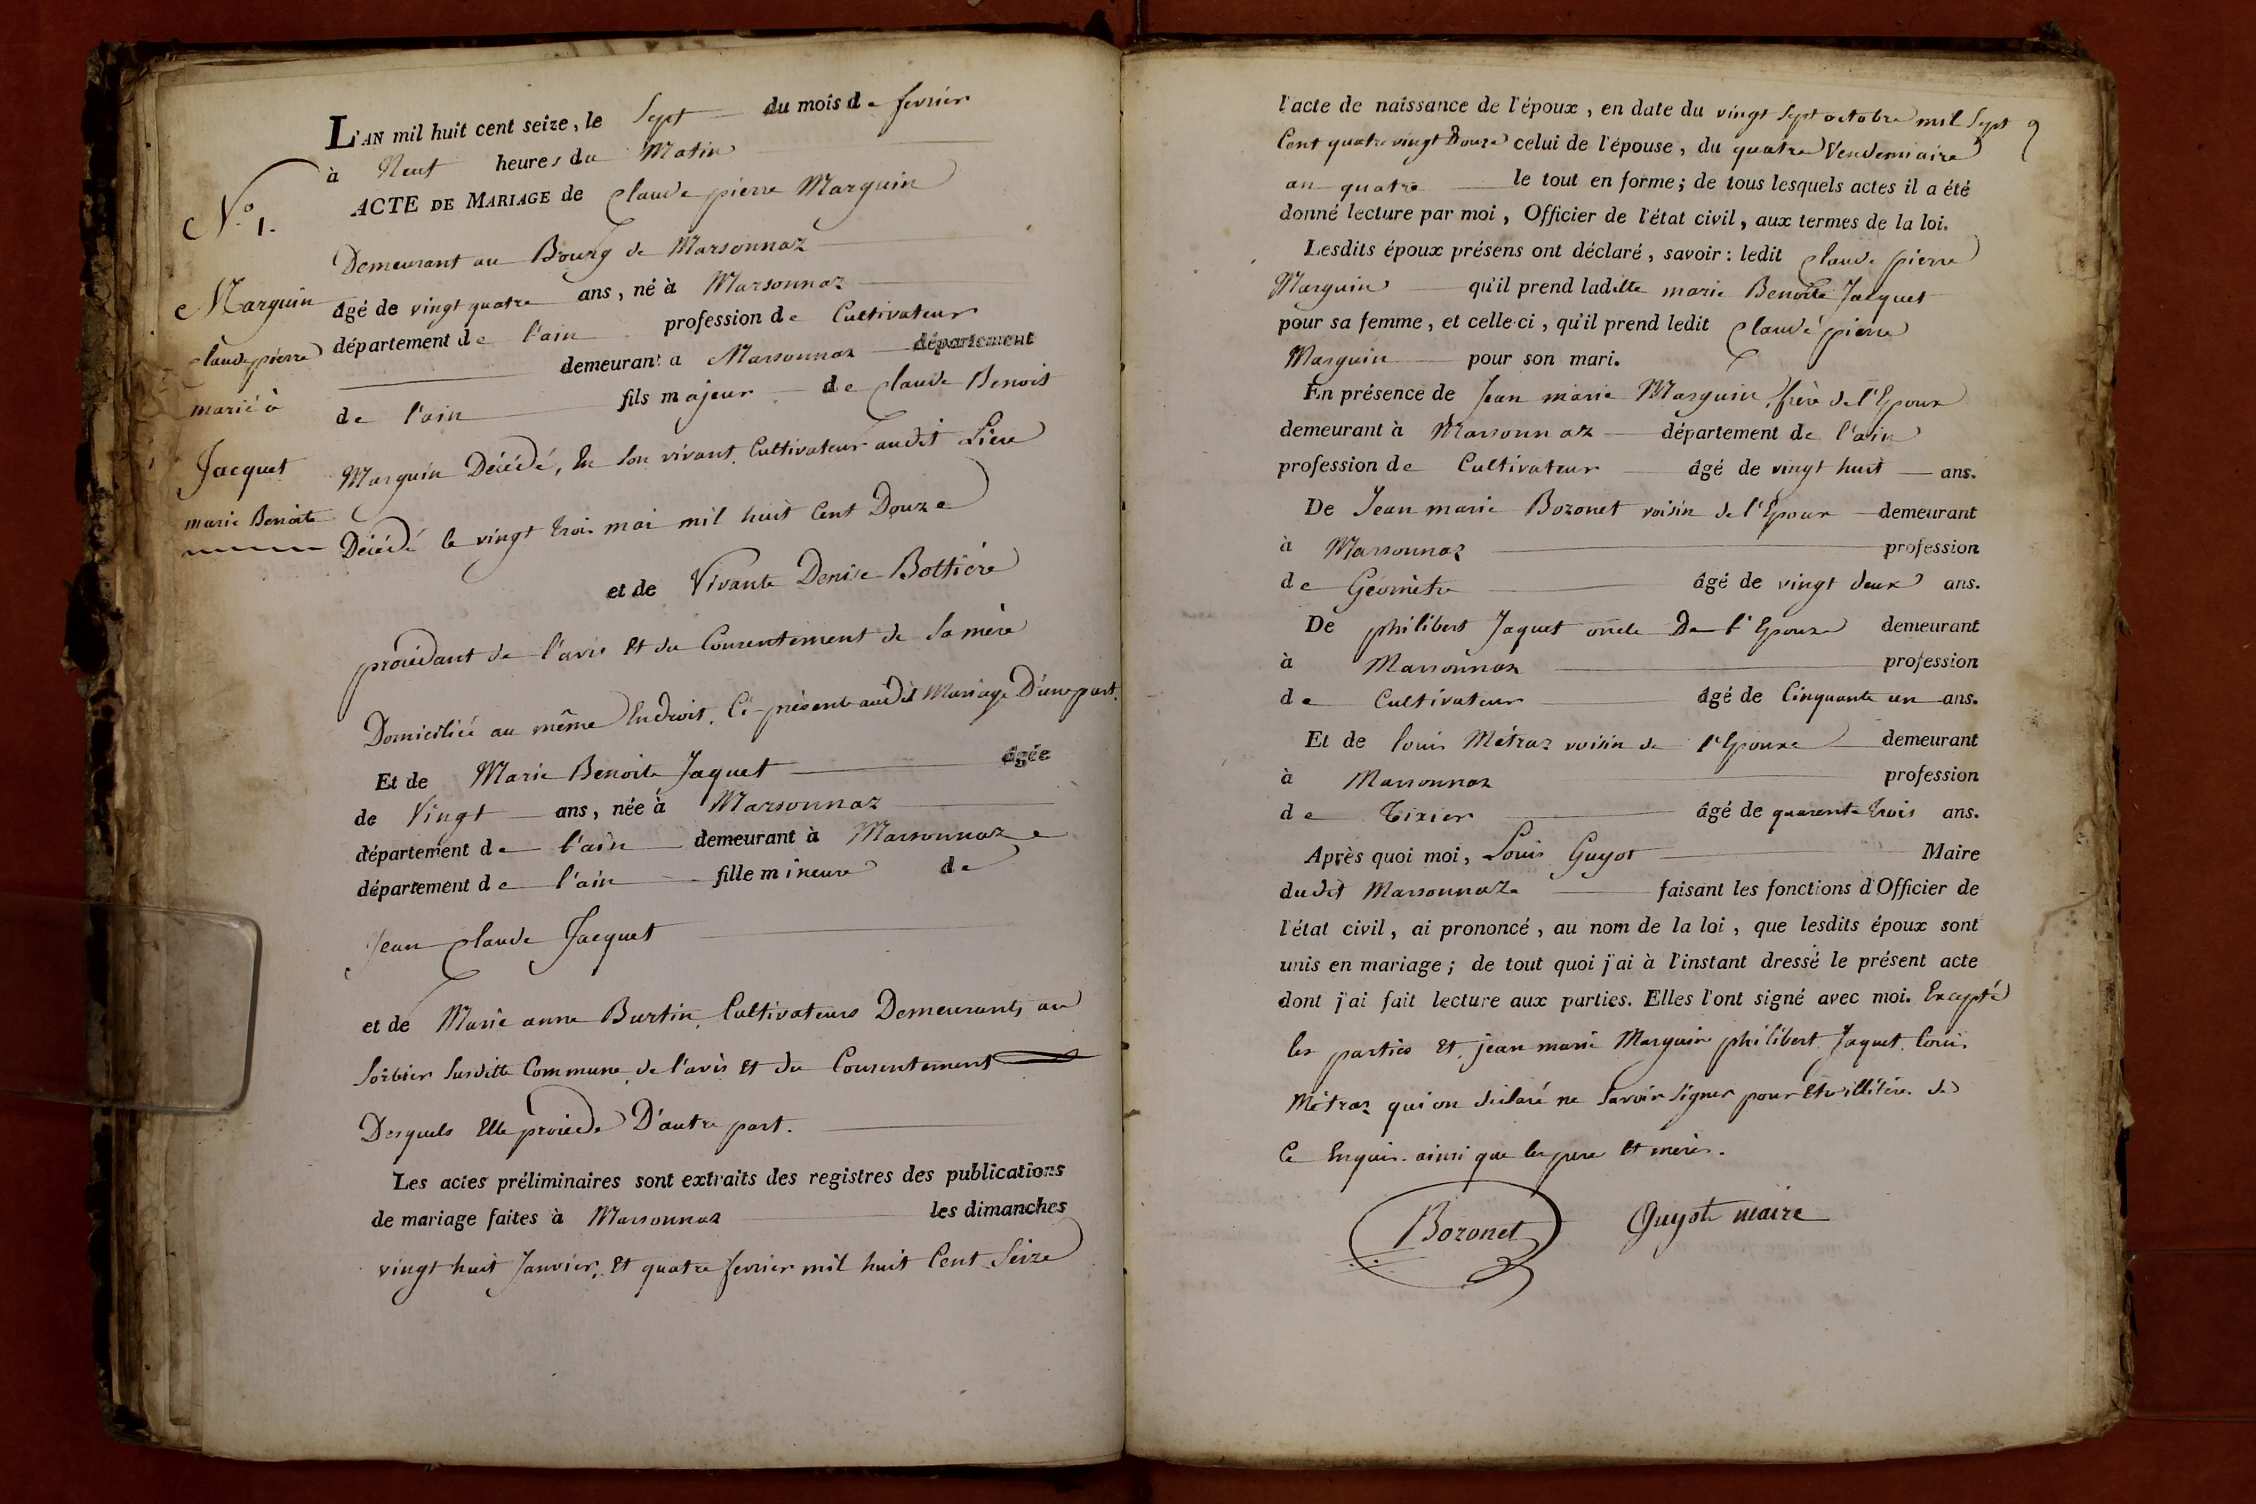 L'AN mil huit cent seize, le Sept du mois de fevrier
à Neuf heures du Matin
ACTE DE MARIAGE de Claude pierre Marguin
N.º 1.
Demeurant au Bourg de Marsonnaz
Marguin
âgé de vingt quatre ans, né à Marsonnaz
claude pierre
département de l'ain profession de Cultivateur
demeurant a Marsonnaz département
marié à
de l'ain fils majeur de Claude Benoit
Jacquet
Marguin Décédé, En Son vivant Cultivateur audit Lieu
marie Benoite
Décédé le vingt trois mai mil huit Cent Douze
et de Vivante Denise Bottiére
procédant de l'avis Et du Consentement de Sa mère
Domiciliée au même Endroit, Ci-présente audit Mariage D'une part.
Et de Marie Benoite Jaquet âgée
de Vingt ans, née à Marsonnaz
département de l'ain demeurant à Marsonnaz
département de l'ain fille mineure de
Jean Claude Jacquet
et de Marie anne Burtin, Cultivateurs Demeurants au
Sorbier Susditte Commune, de l'avis Et du Consentement
Desquels Elle procède D'autre part.
Les actes préliminaires sont extraits des registres des publications
de mariage faites à Marsonnaz les dimanches
vingt huit Janvier, Et quatre fevrier mil huit Cent Seize
l'acte de naissance de l'époux, en date du vingt Sept octobre mil Sept
Cent quatre vingt Douze celui de l'épouse, du quatre Vendemiaire
an quatre le tout en forme; de tous lesquels actes il a été
donné lecture par moi, Officier de l'état civil, aux termes de la loi.
Lesdits époux présens ont déclaré, savoir: ledit Claude pierre
Marguin qu'il prend laditte marie Benoite Jacquet
pour sa femme, et celle-ci, qu'il prend ledit Claude pierre
Marguin pour son mari.
En présence de Jean marie Marguin, frère de l'Epoux
demeurant à Marsonnaz département de l'ain
profession de Cultivateur âgé de vingt huit ans.
De Jean marie Bozonet voisin de l'Epoux demeurant
à Marsonnaz profession
de Géomètre âgé de vingt deux ans.
De philibert Jaquet oncle De l'Epouse demeurant
à Marsonnaz profession
de Cultivateur âgé de Cinquante un ans.
Et de louis Métraz voisin de l'Epouse demeurant
à Marsonnaz profession
de Tixier âgé de quarente trois ans.
Après quoi moi, Louis Guyot Maire
dudit Marsonnaz faisant les fonctions d'Officier de
l'état civil, ai prononcé, au nom de la loi, que lesdits époux sont
unis en mariage; de tout quoi j'ai à l'instant dressé le présent acte
dont j'ai fait lecture aux parties. Elles l'ont signé avec moi. Excepté
les parties Et jean marie Marguin philibert Jaquet louis
Métraz qui on déclaré ne Savoir Signer pour Etre illitéré de
Ce Enquis. ainsi que les pere Et meres.
Bozonet Guyot maire